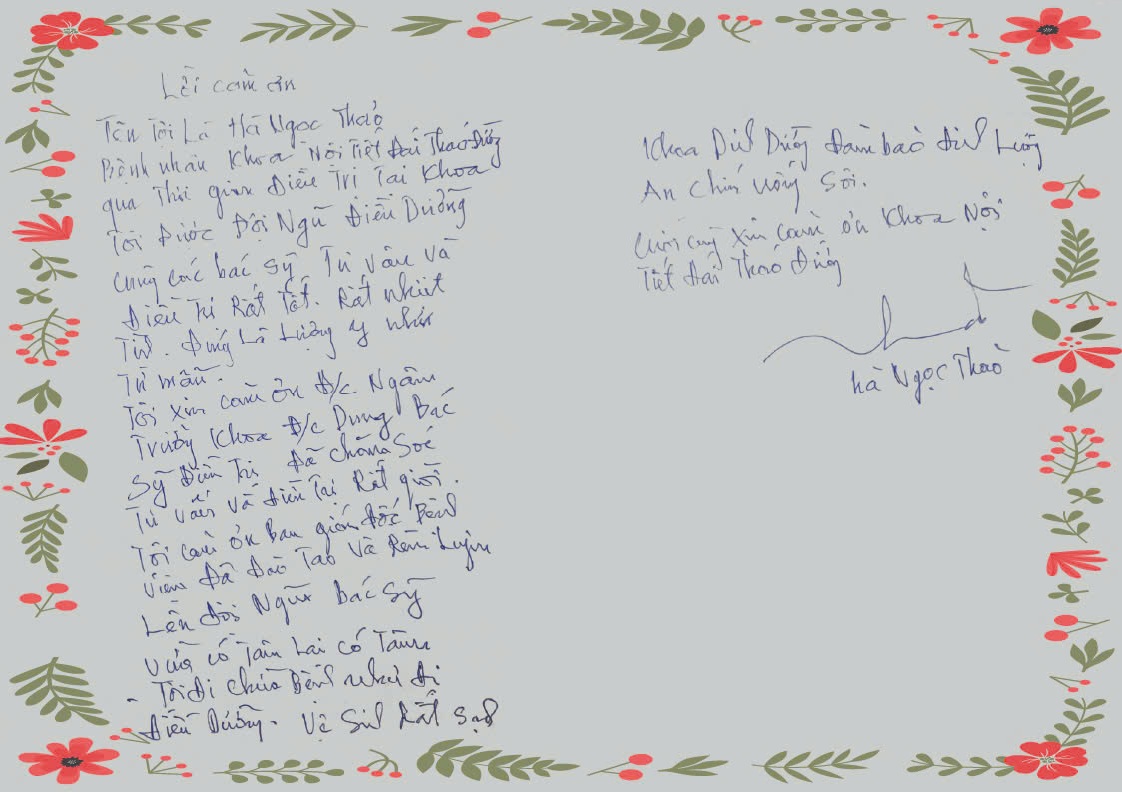 Lời cảm ơn
Tên Tôi Là Hà Ngọc Thảo
Bệnh nhân Khoa Nội Tiết Đái Tháo Đường
qua Thời gian Điều Trị Tại Khoa
Tôi Được Đội Ngũ Điều Dưỡng
cùng các bác sỹ Tư vấn và
Điều Trị Rất Tốt. Rất nhiệt
Tình. Đúng Là Lương y như
Từ mẫu.
Tôi xin cảm ơn Đ/c Ngâm
Trưởng Khoa Đ/c Dung Bác
sỹ Điều Trị Đã chăm Sóc
Tư vấn và điều Trị Rất giỏi.
Tôi cảm ơn Ban giám đốc Bệnh
viện Đã Đào Tạo Và Rèn Luyện
Lên đội Ngũ Bác Sỹ
vừa có Tâm Lại có Tầm
- Tôi đi chữa Bệnh như đi
điều Dưỡng. Vệ Sinh Rất sạch
Khoa Dinh Dưỡng Đảm bảo định Lượng
Ăn chín uống Sôi.
Cuối cùng xin cảm ơn Khoa Nội
Tiết Đái Tháo Đường
Hà Ngọc Thảo